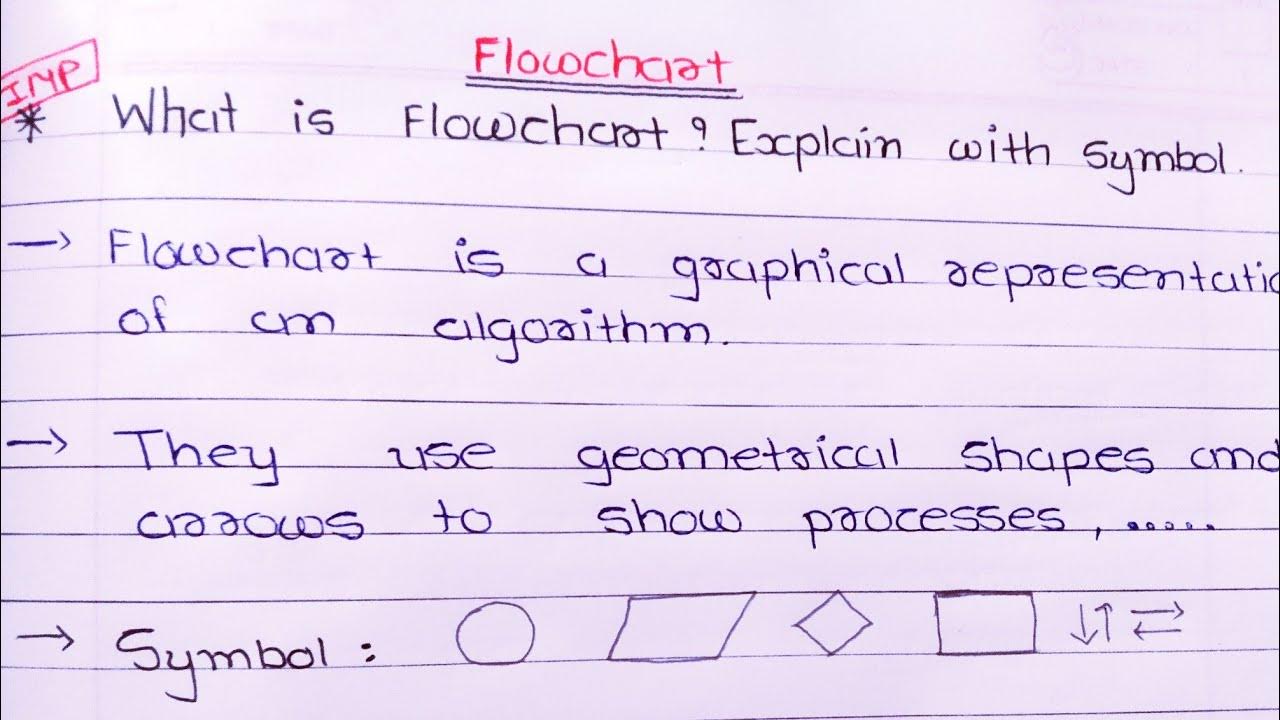 Flowchart
IMP
* What is Flowchart? Explain with symbol.
→ Flowchart is a graphical representatio
of an algorithm.
→ They use geometrical shapes and
arrows to show processes, .....
→ Symbol :